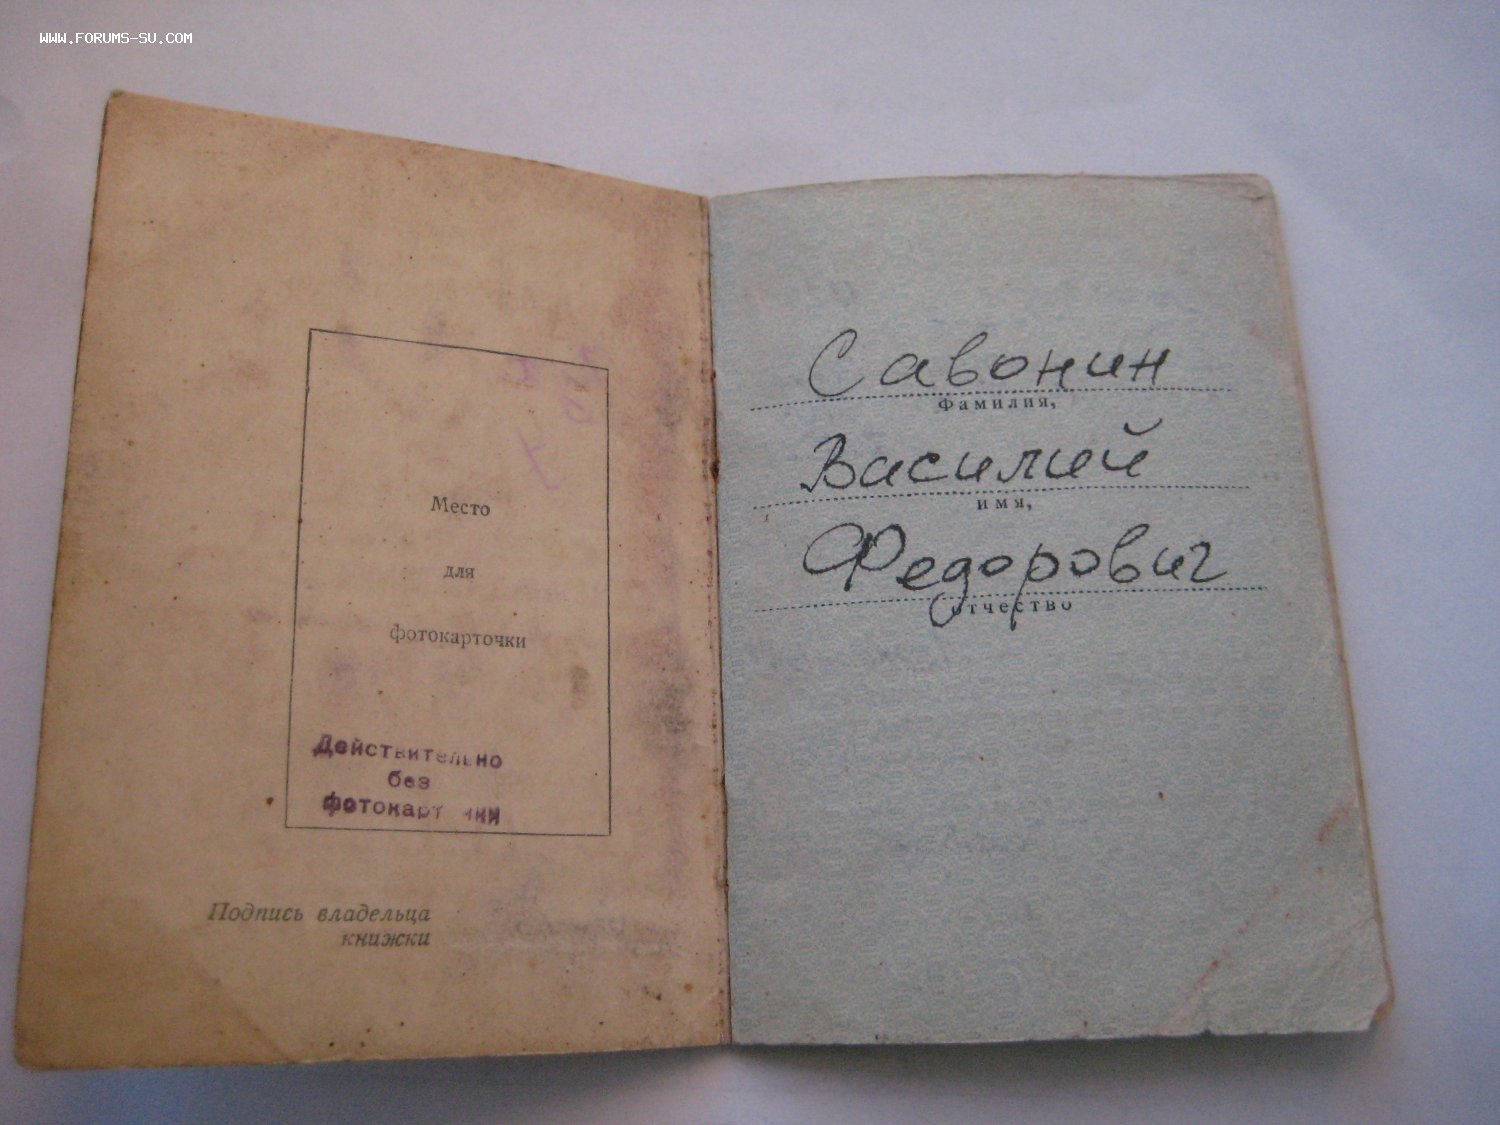 WWW.FORUMS-SU.COM
Место
для
фотокарточки
Действительно
без
фотокарт чки
Подпись владельца
книжки
Савонин
фамилия,
Василий
имя,
Федорович
отчество